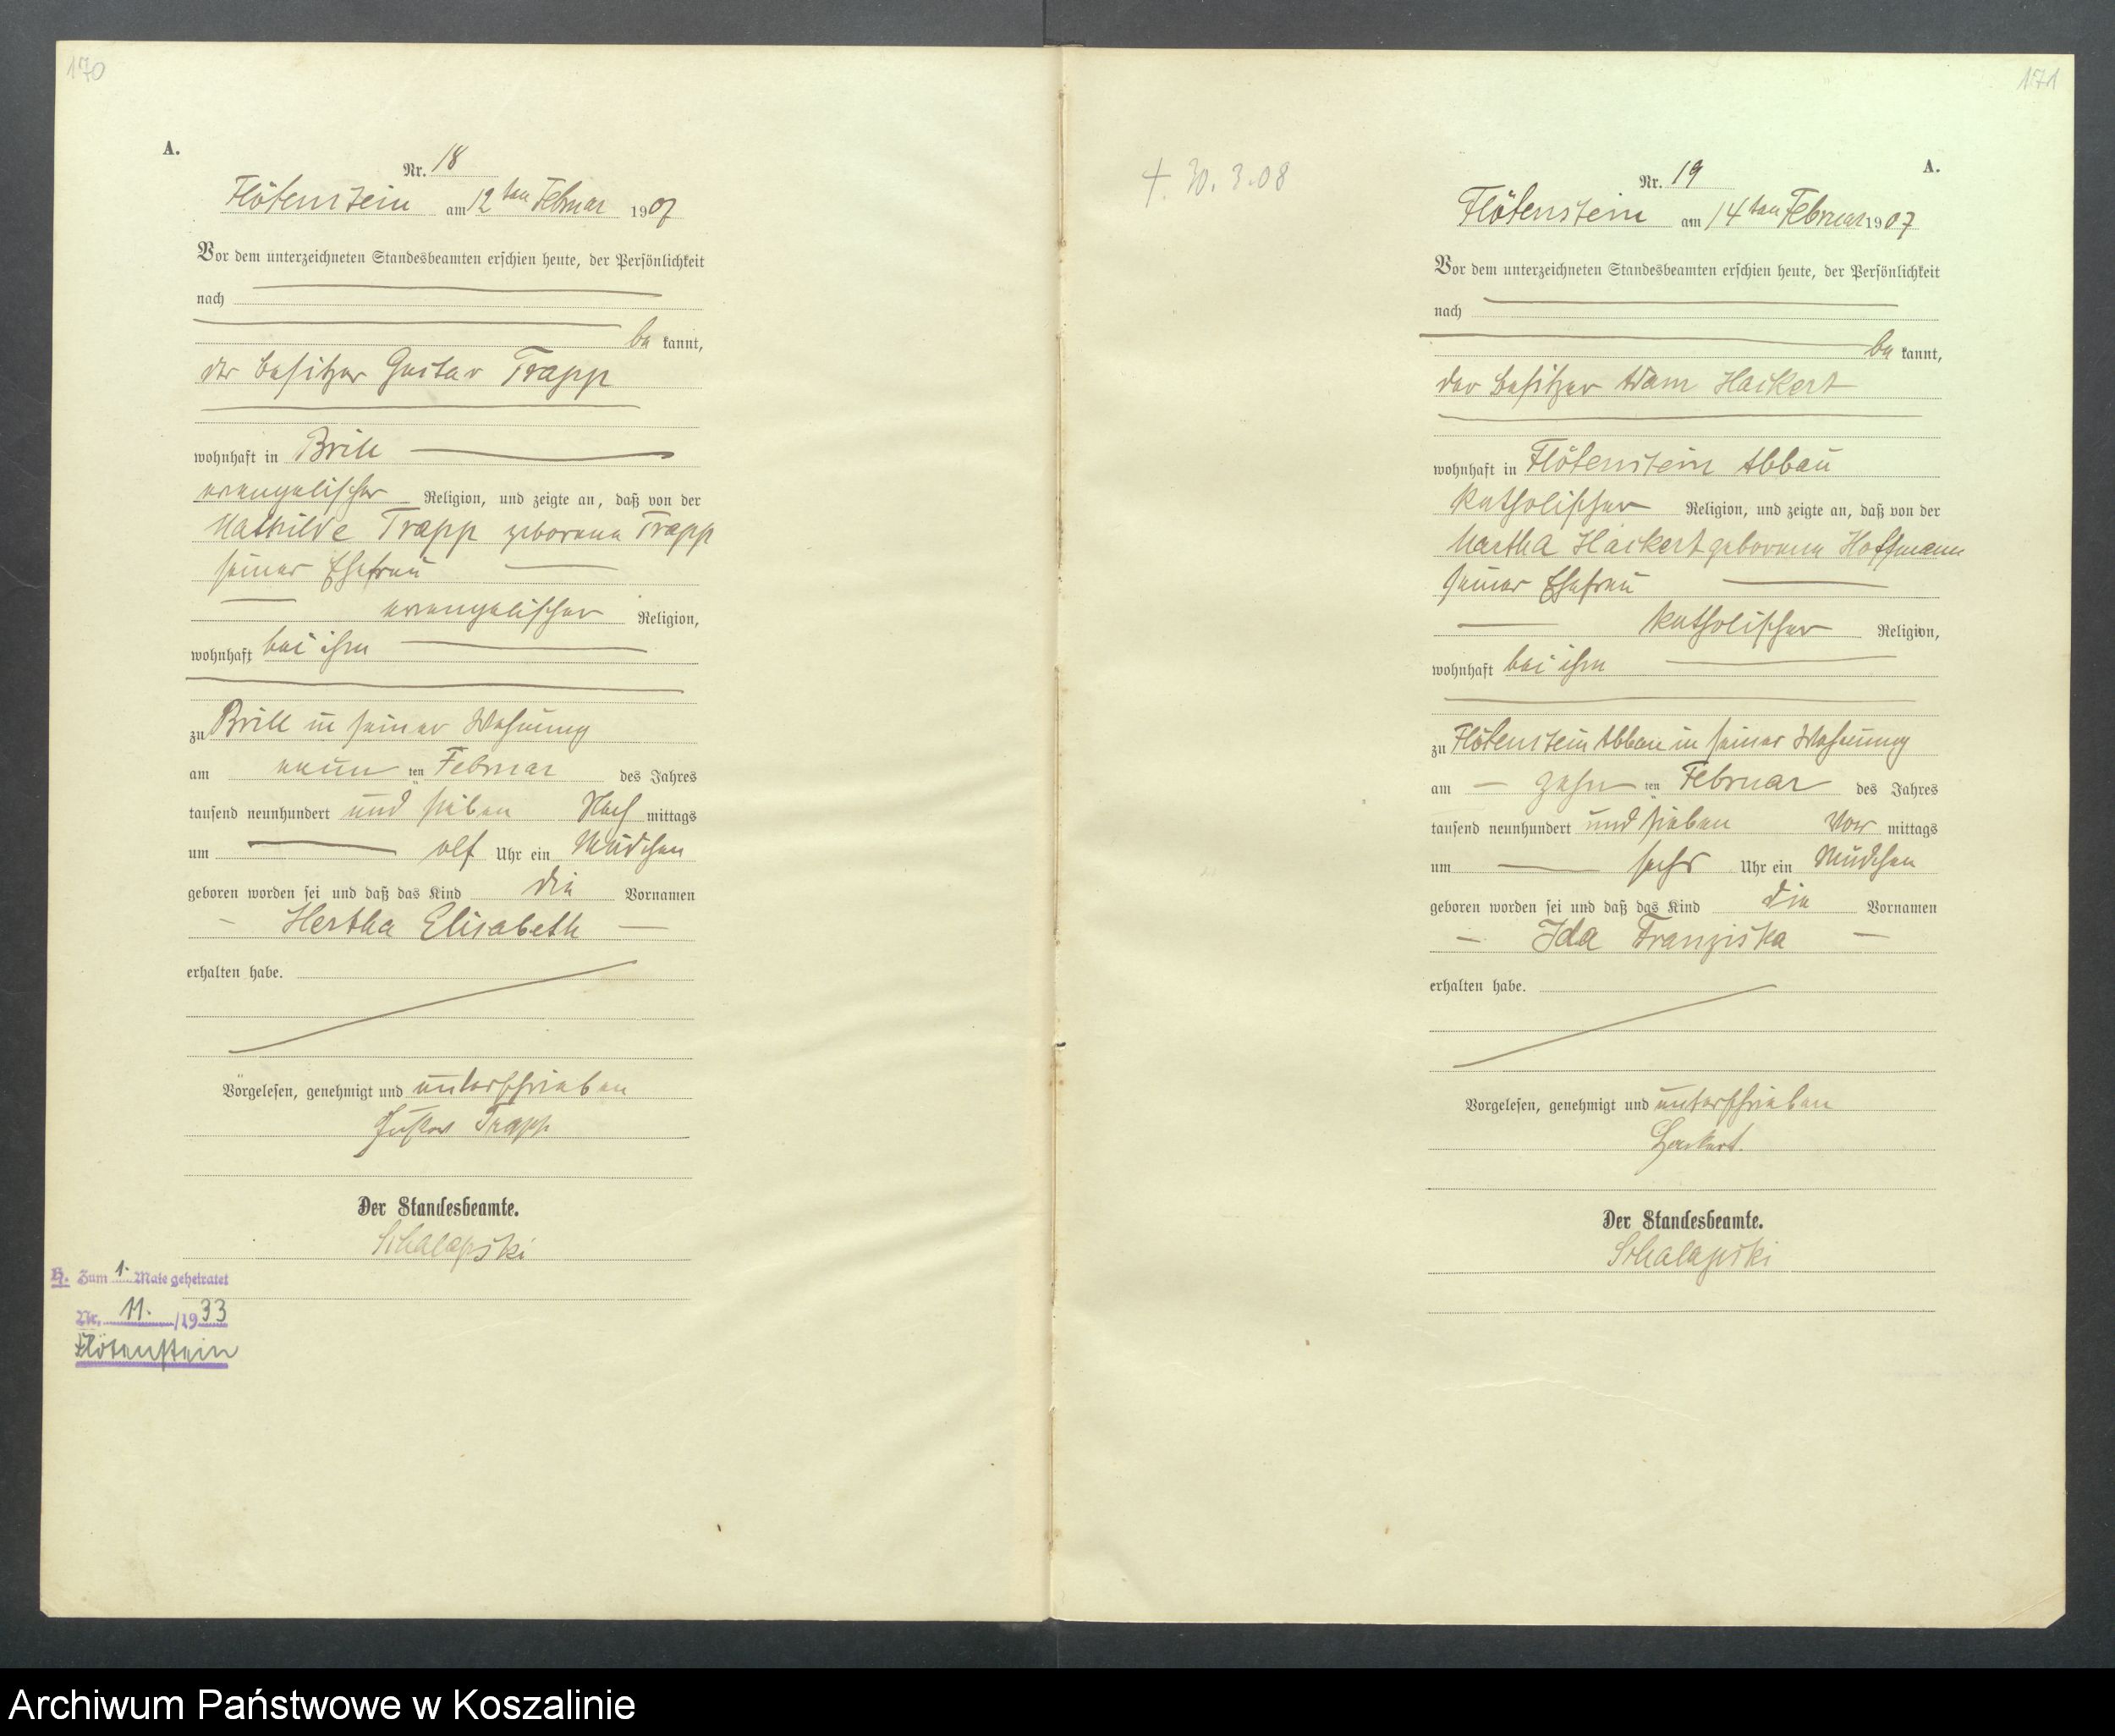 170
A.
Nr. 18
Flötenstein am 12ten Februar 1907
Vor dem unterzeichneten Standesbeamten erschien heute, der Persönlichkeit
nach
bekannt,
der Besitzer Gustav Trapp
wohnhaft in Brill
evangelischer Religion, und zeigte an, daß von der
Mathilde Trapp geborene Trapp
seiner Ehefrau
evangelischer Religion,
wohnhaft bei ihm
zu Brill in seiner Wohnung
am neun ten Februar des Jahres
tausend neunhundert und sieben Nach mittags
um elf Uhr ein Mädchen
geboren worden sei und daß das Kind die Vornamen
Hertha Elisabeth
erhalten habe.
Vorgelesen, genehmigt und unterschrieben
Gustav Trapp
Der Standesbeamte.
Schalapski
H. Zum 1. Male geheiratet
Nr. 11. /1933
Flötenstein
171
A.
+. 30. 3. 08
Nr. 19
Flötenstein am 14ten Februar 1907
Vor dem unterzeichneten Standesbeamten erschien heute, der Persönlichkeit
nach
bekannt,
der Besitzer Adam Hackert
wohnhaft in Flötenstein Abbau
katholischer Religion, und zeigte an, daß von der
Martha Hackert geborene Hoffmann
seiner Ehefrau
katholischer Religion,
wohnhaft bei ihm
zu Flötenstein Abbau in seiner Wohnung
am zehn ten Februar des Jahres
tausend neunhundert und sieben Vor mittags
um sechs Uhr ein Mädchen
geboren worden sei und daß das Kind die Vornamen
Ida Franziska
erhalten habe.
Vorgelesen, genehmigt und unterschrieben
Hackert.
Der Standesbeamte.
Schalapski
Archiwum Państwowe w Koszalinie